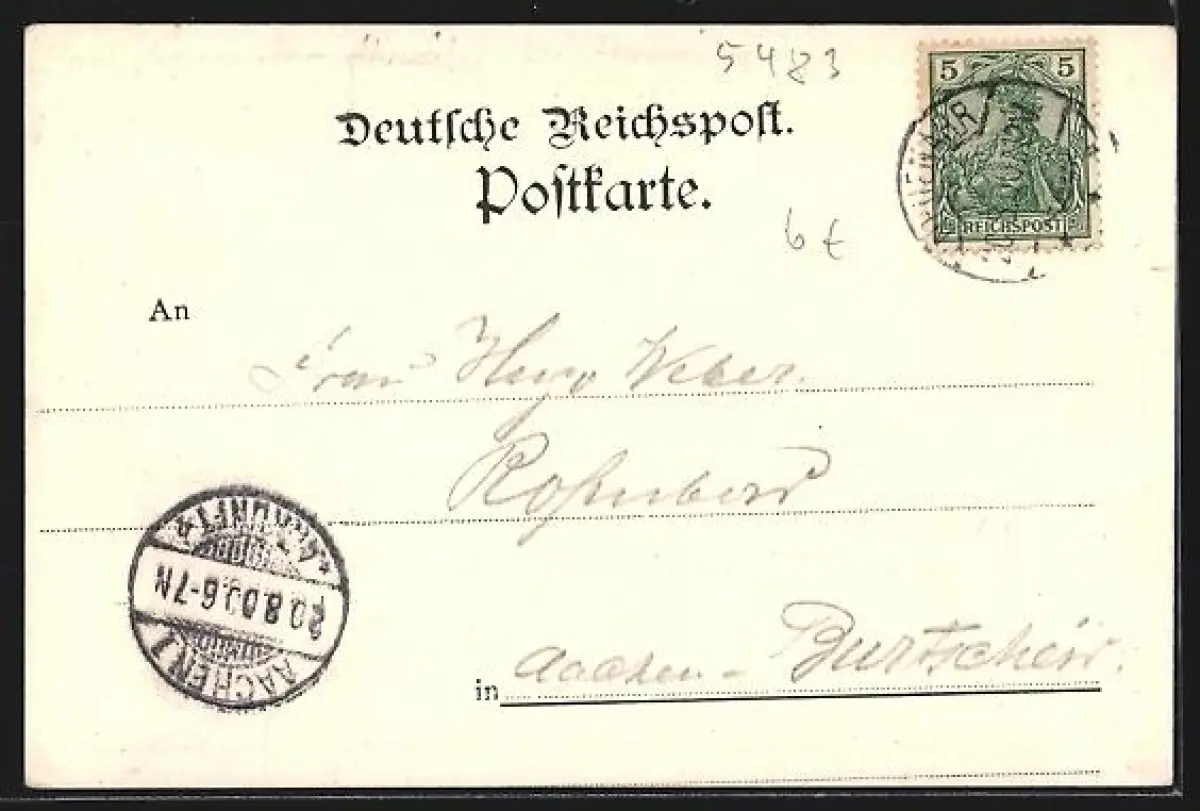 5483
5 5
Deutsche Reichspost.
Postkarte.
REICHSPOST
6 €
An
Frau Weber.
in Aachen - Burtscheid.
20.8.00.6-7N
AACHEN 1